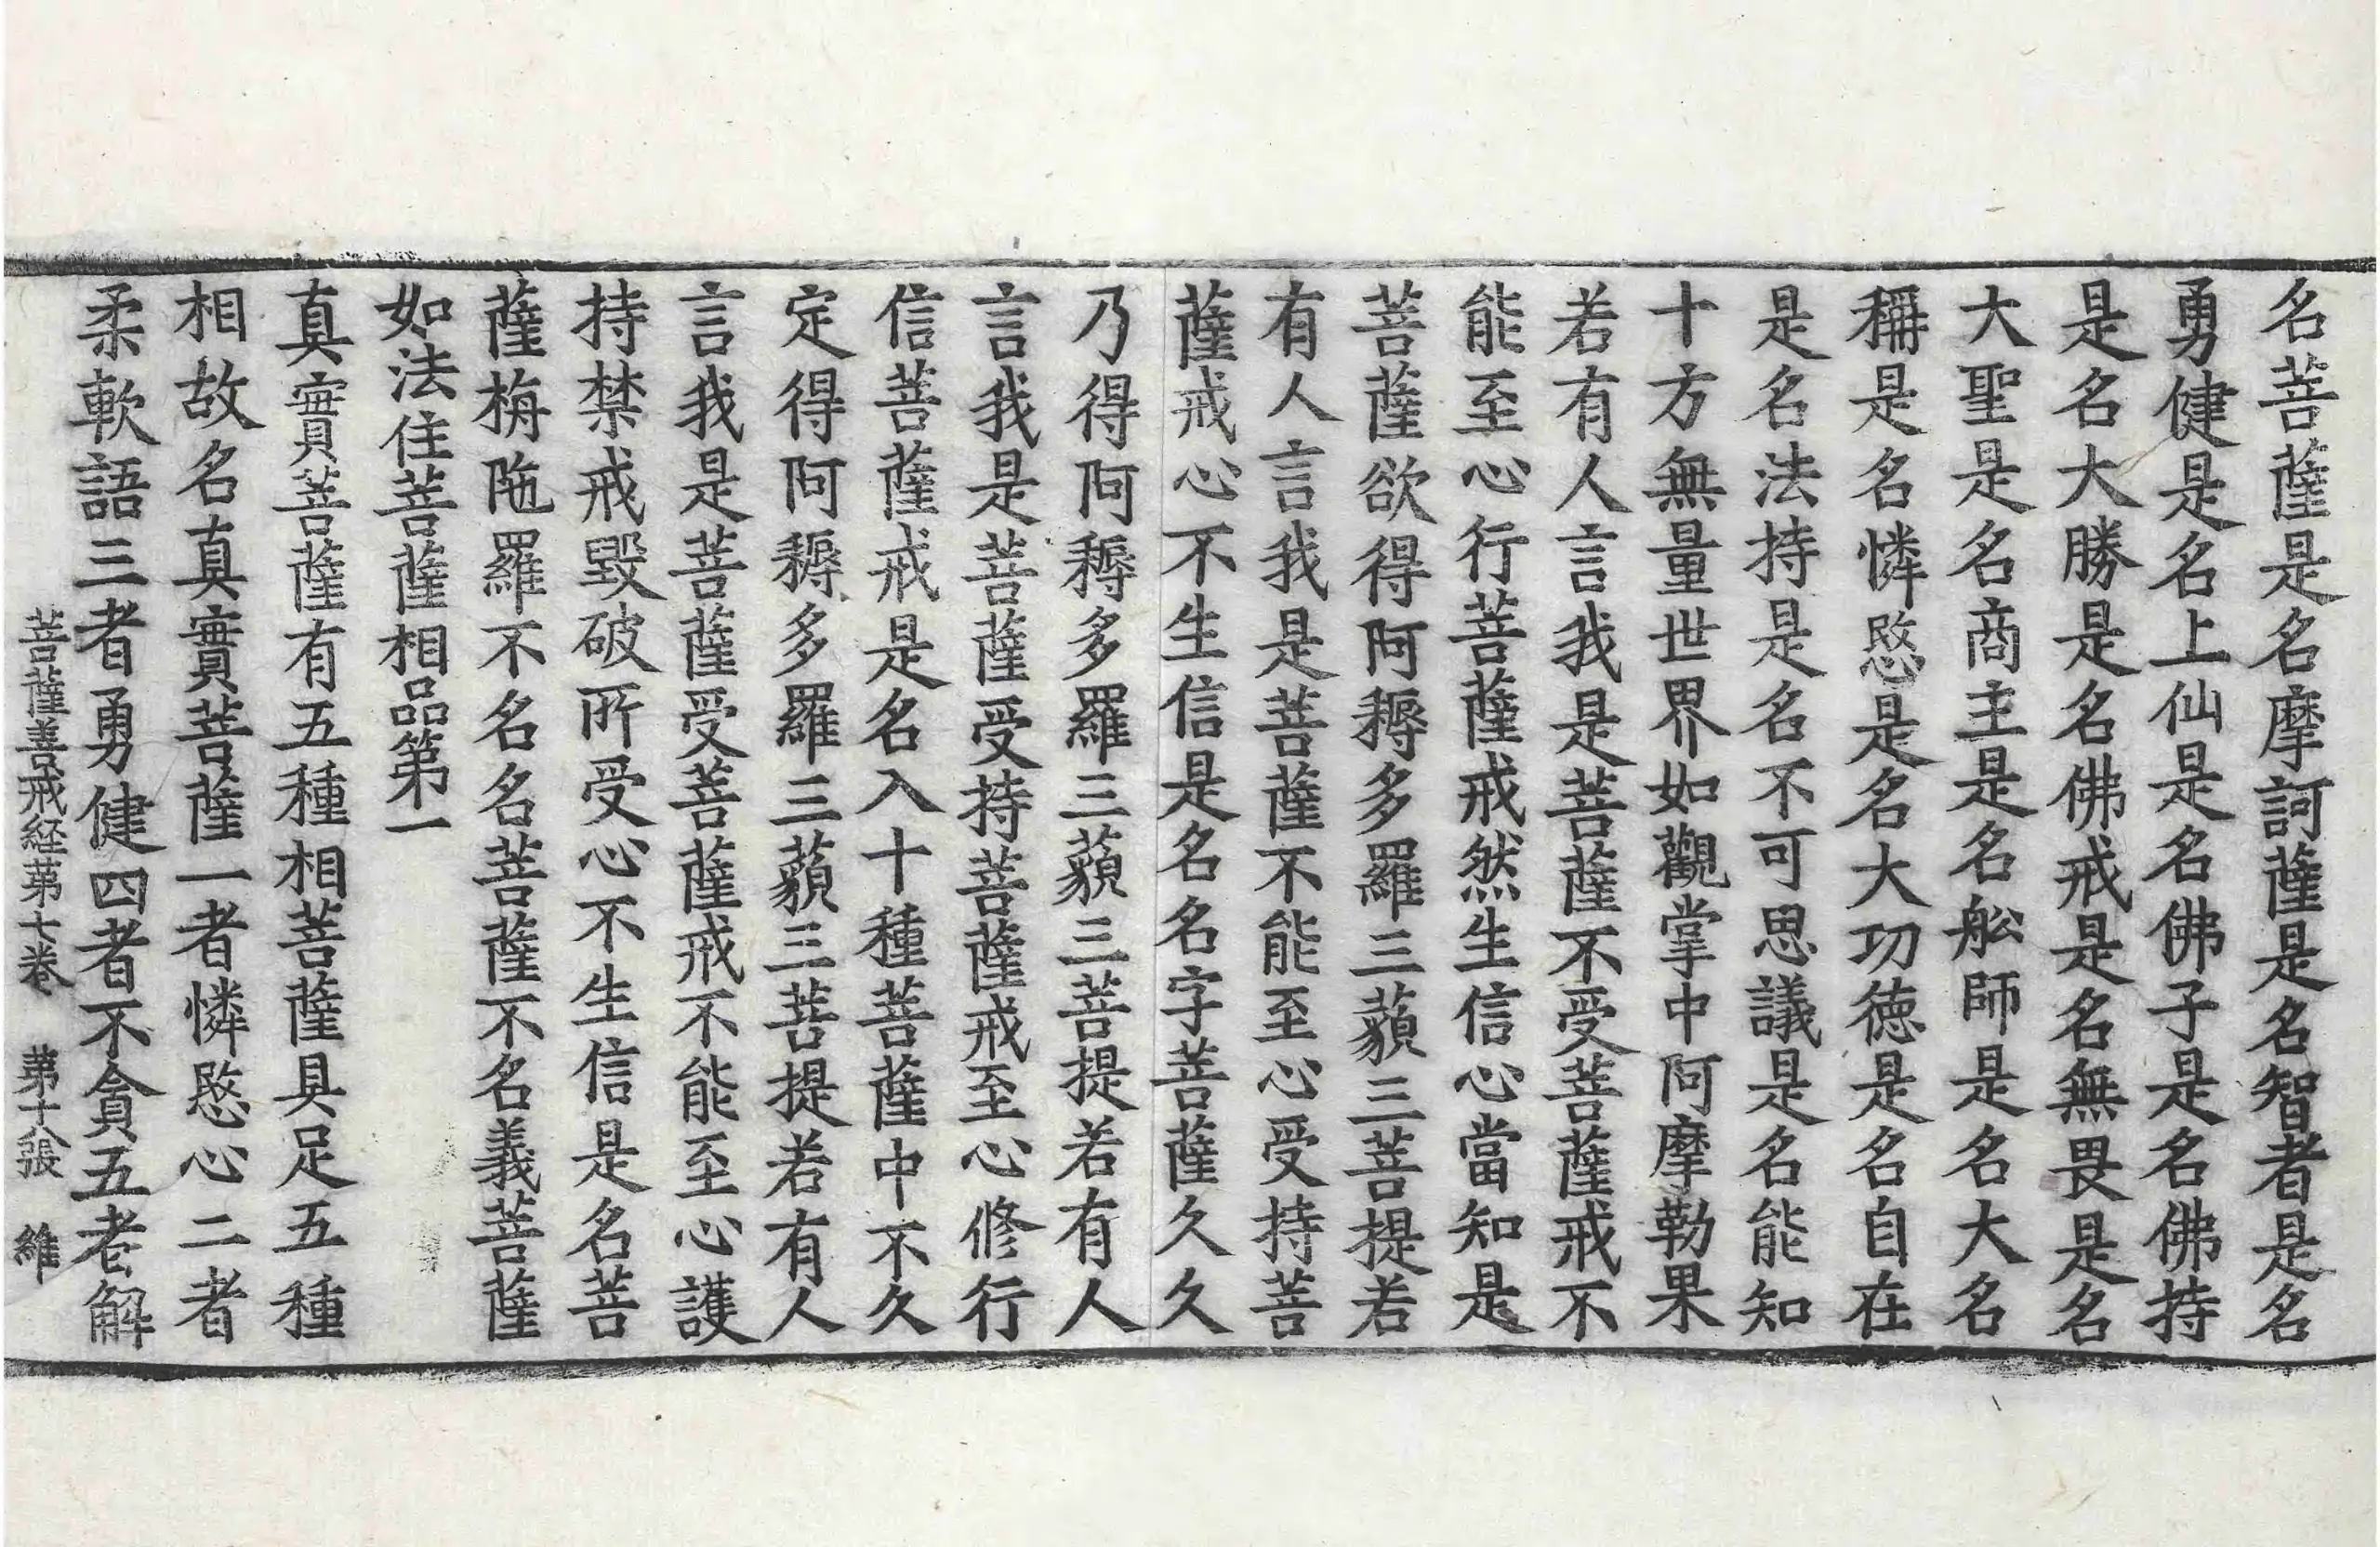 名菩薩是名摩訶薩是名智者是名
勇健是名上仙是名佛子是名佛持
是名大勝是名佛戒是名無畏是名
大聖是名商主是名舩師是名大名
稱是名憐愍是名大功徳是名自在
是名法持是名不可思議是名能知
十方無量世界如觀掌中阿摩勒果
若有人言我是菩薩不受菩薩戒不
能至心行菩薩戒然生信心當知是
菩薩欲得阿耨多羅三藐三菩提若
有人言我是菩薩不能至心受持菩
薩戒心不生信是名名字菩薩久久
乃得阿耨多羅三藐三菩提若有人
言我是菩薩受持菩薩戒至心修行
信菩薩戒是名入十種菩薩中不久
定得阿耨多羅三藐三菩提若有人
言我是菩薩受菩薩戒不能至心護
持禁戒毀破所受心不生信是名菩
薩栴陁羅不名名菩薩不名義菩薩
如法住菩薩相品第一
真實菩薩有五種相菩薩具足五種
相故名真實菩薩一者憐愍心二者
柔軟語三者勇健四者不貪五者解
菩薩善戒経苐七卷 苐十八張 維